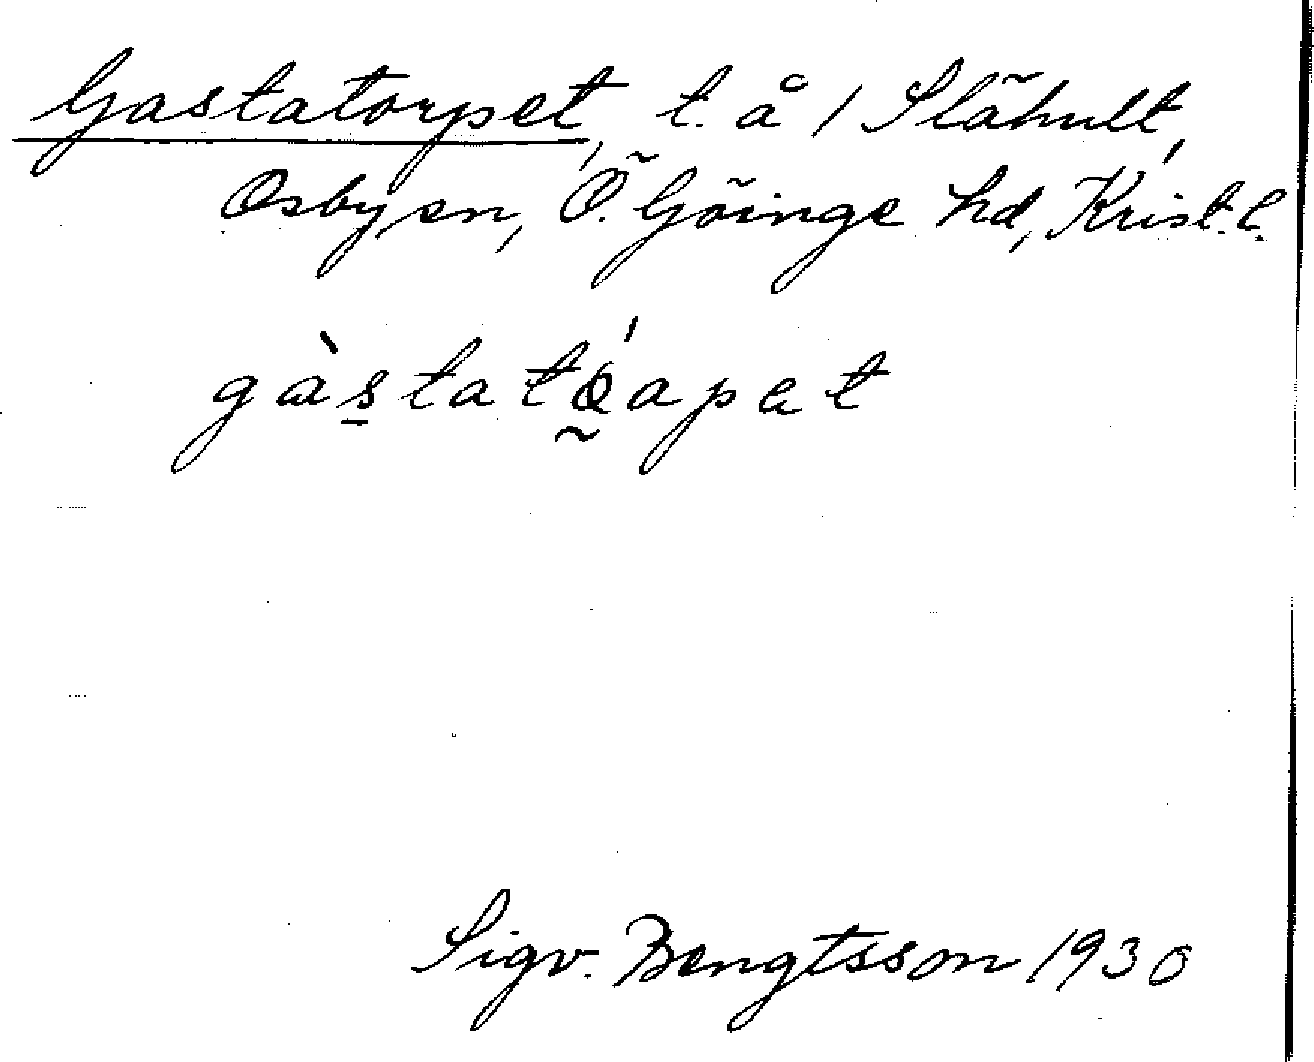 Gastatorpet, t. å 1 Slähult,
Osby sn, Ö. Göinge hd, Krist. l.
gàstatǫ́apət
Sigv. Bengtsson 1930